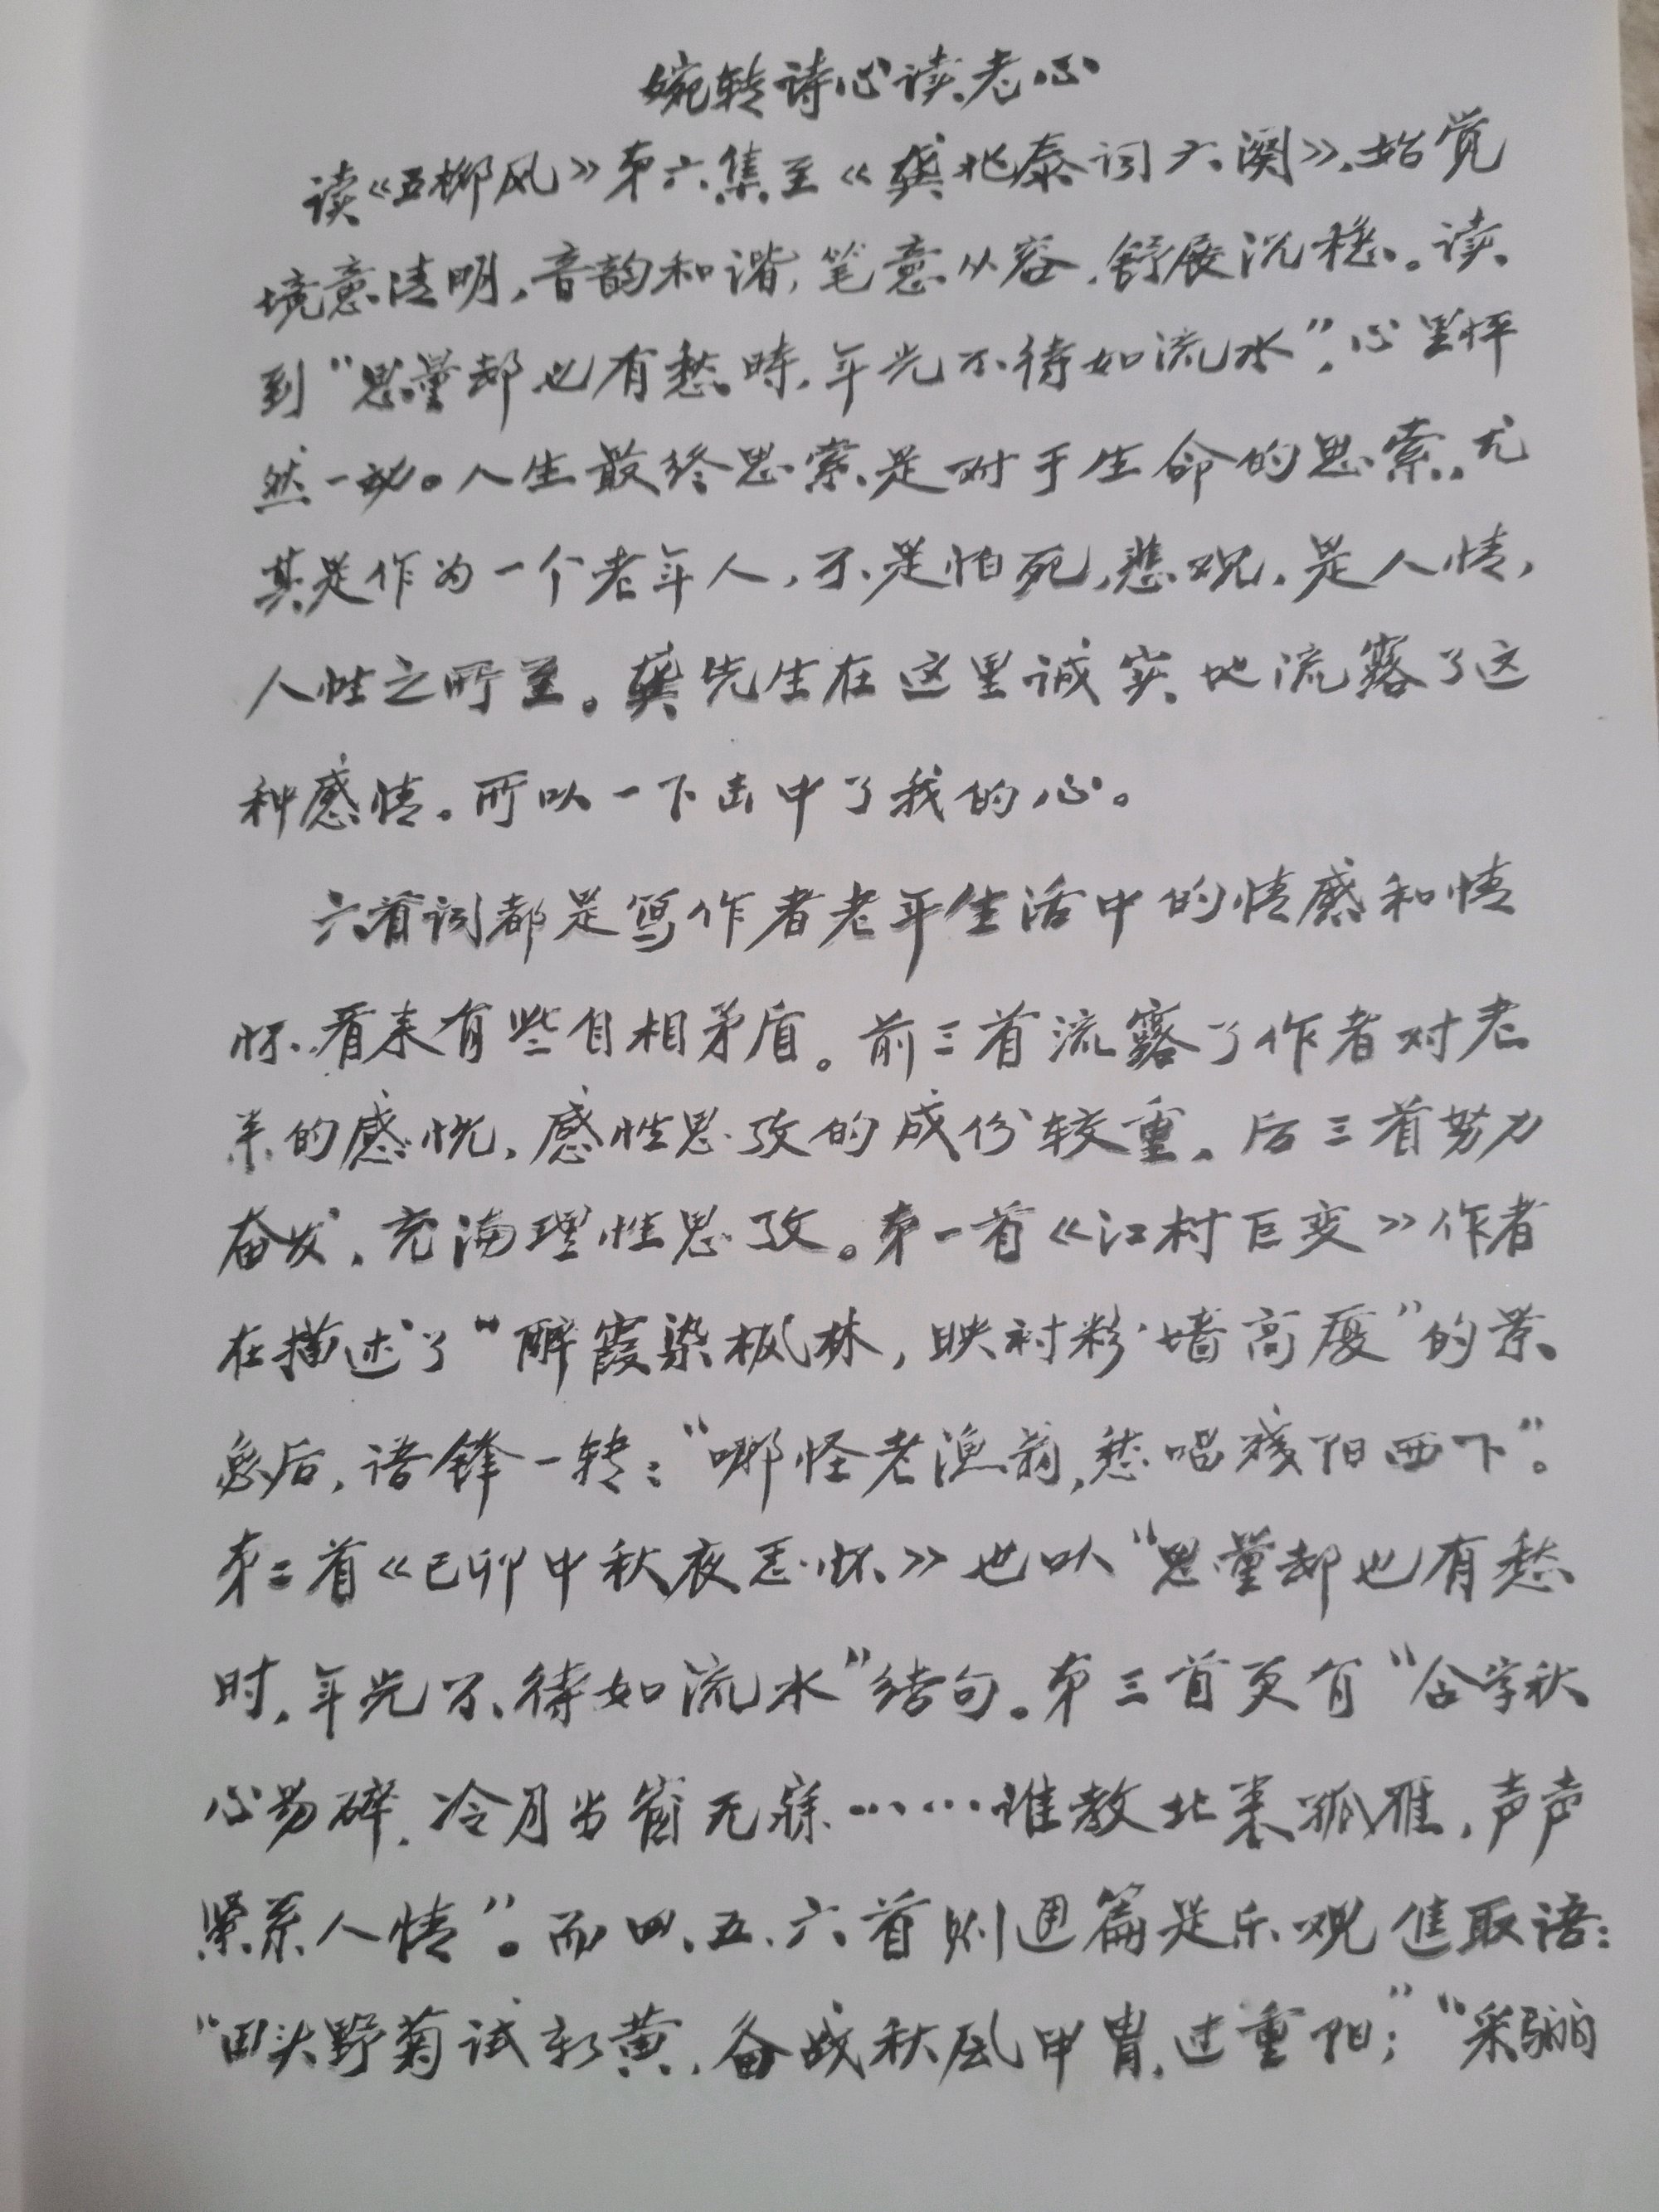 婉转诗心读老心
读《五柳风》第六集至《龚兆泰词六阕》，始觉
境意清明，音韵和谐，笔意从容，舒展沉稳。读
到“思量却也有愁時，年光不待如流水”，心里怦
然一动。人生最终思索是对于生命的思索，尤
其是作为一个老年人，不是怕死，悲观，是人情，
人性之所至。龚先生在这里诚实地流露了这
种感情。所以一下击中了我的心。
六首词都是写作者老年生活中的情感和情
怀，看来有些自相矛盾。前三首流露了作者对老
来的感忧，感性思考的成份较重，后三首努力
奋发，充满理性思考。第一首《江村巨变》作者
在描述了“醉霞染枫林，映衬粉墙高厦”的景
象后，语锋一转：“哪怪老渔翁，愁唱残阳西下”。
第二首《己卯中秋夜恙怀》也以“思量却也有愁
时，年光不待如流水”结句。第三首更有“合字秋
心易碎，冷月当窗无寐……谁教北来孤雁，声声
紧系人情”。而四、五、六首则通篇是乐观进取语：
“田头野菊试新黄，备战秋风甲胄，过重阳；”“采骊